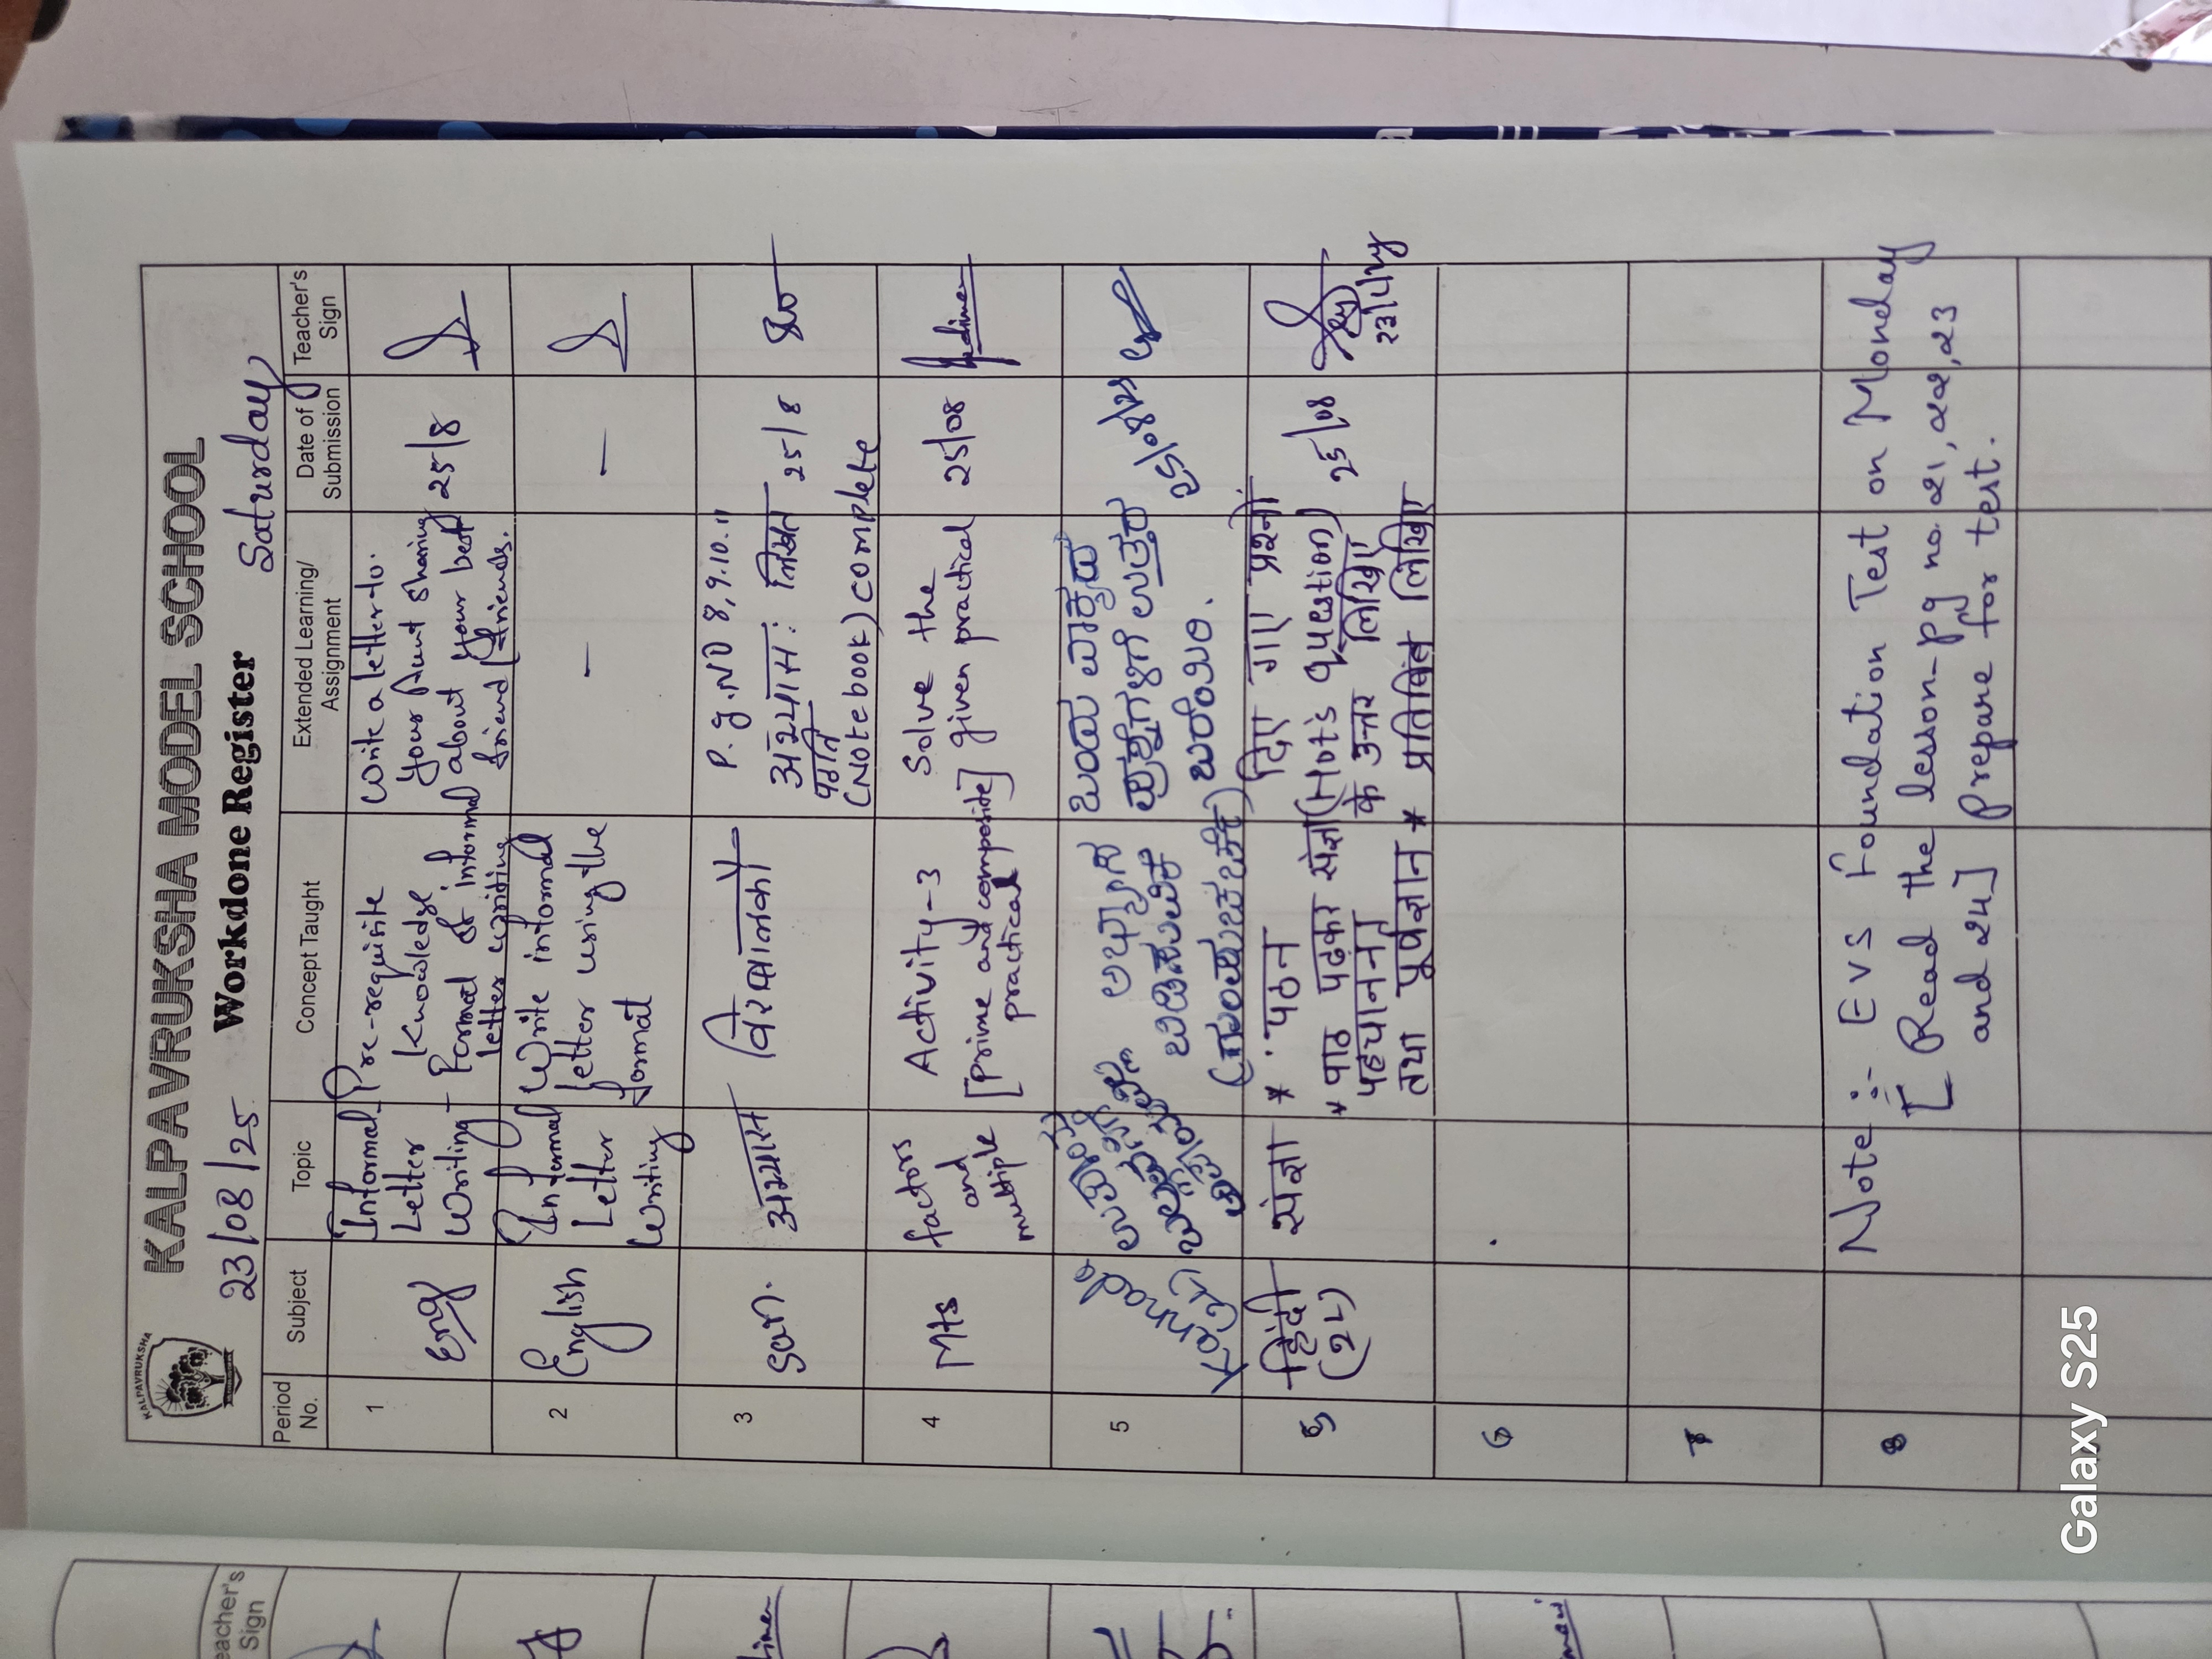 KALPAVRUKSHA
KALPAVRUKSHA MODEL SCHOOL
23/08/25 Workdone Register Saturday
Period No. Subject Topic Concept Taught Extended Learning/ Assignment Date of Submission Teacher's Sign
1 Eng Informal Letter Writing
Pre-requisite
Knowledge
- Format of informal
letter writing
Write a letter to
your Aunt sharing
about your best
friend/friends.
25/8
2 English Informal Letter Writing
Write informal
letter using the
format
-
-
3 San. अभ्यास
P.g.NO 8,9,10,11
अभ्यास: लिखत
(Notebook) complete
25/8
4 Mts factors and multiple
Activity-3
[Prime and composite]
practical
Solve the
given practical
25/08
5 Kannada
ಅಭ್ಯಾಸ
ಒಂದು ವಾಕ್ಯದ
ಪ್ರಶ್ನೆಗಳಿಗೆ ಉತ್ತರ
ಬರೆಯಿರಿ.
5 हिंदी (2L) संज्ञा
* पठन
* पाठ पढ़कर संज्ञा
पहचानना
तथा पूर्वज्ञान
दिए गए प्रश्नों
(Hots question)
के उत्तर लिखिए
* प्रतिबिंब लिखिए
25/08
6
7
8
Note :- EVS Foundation Test on Monday
[Read the lesson-pg no. 21, 22, 23
and 24] Prepare for test.
Teacher's
Sign
Galaxy S25